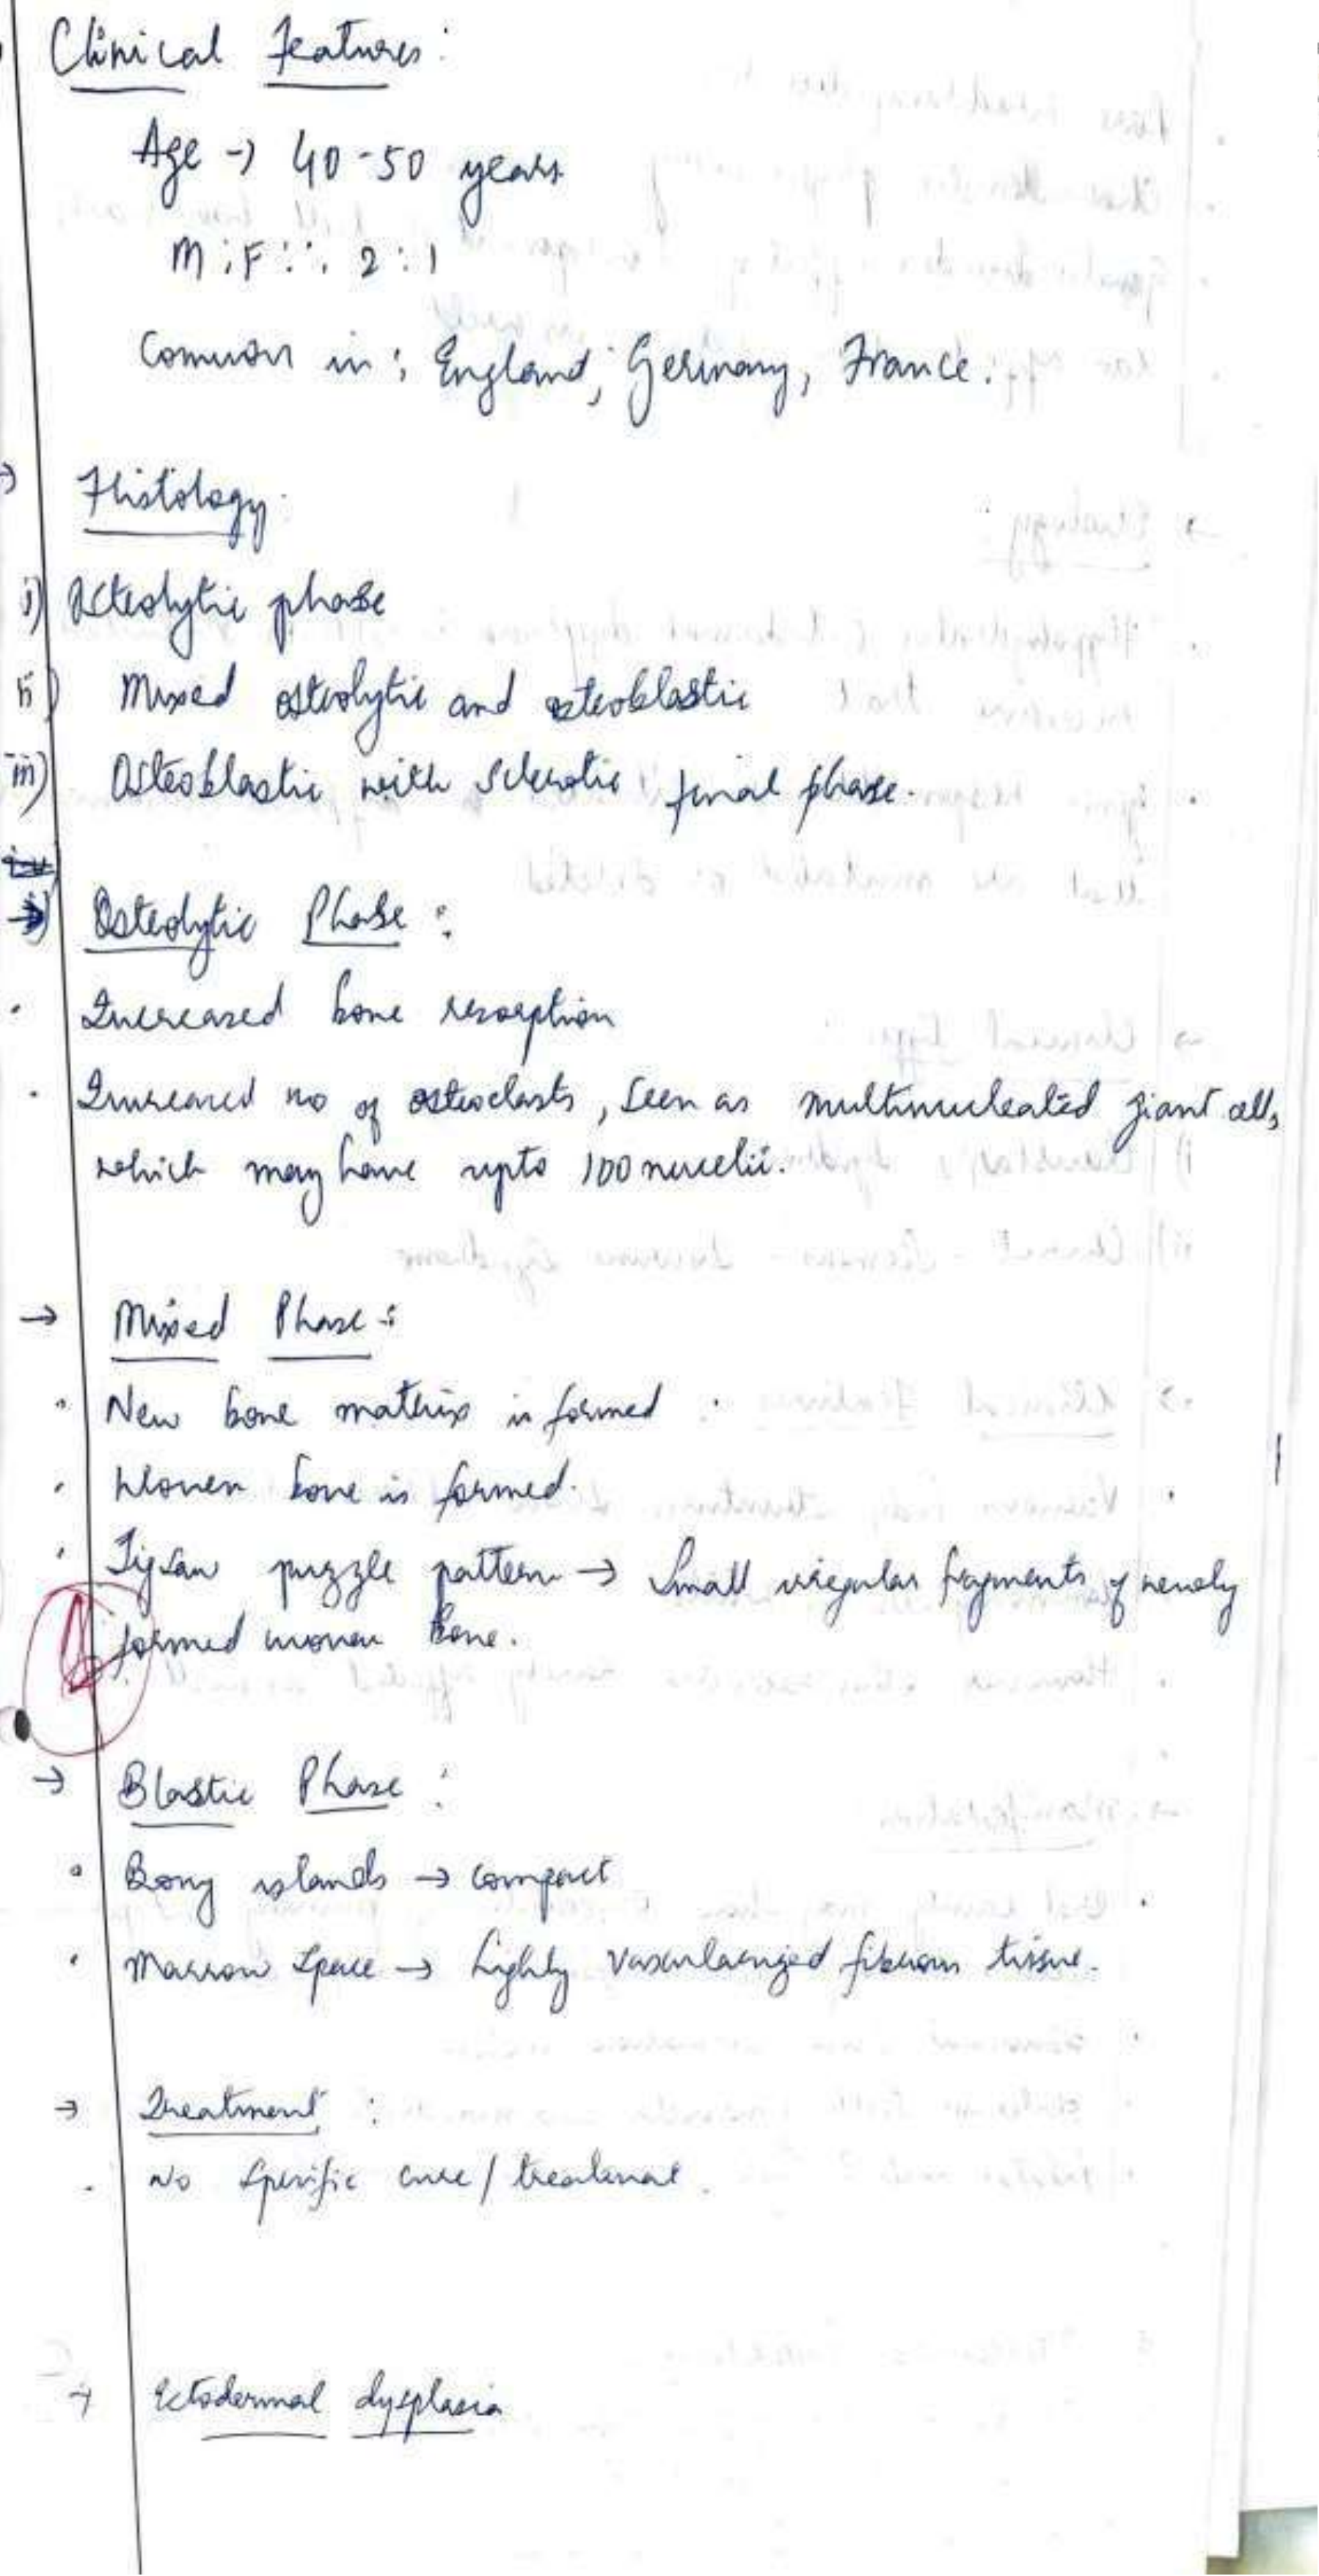 Clinical Features:
Age → 40-50 years
M:F :: 2:1
Common in: England, Germany, France.
→ Histology:
i) Osteolytic phase
ii) Mixed osteolytic and osteoblastic
iii) Osteoblastic with sclerotic final phase.
→ Osteolytic Phase:
• Increased bone resorption
• Increased no of osteoclasts, seen as multinucleated giant cells
which may have upto 100 nucelii.
→ Mixed Phase:
• New bone matrix is formed
• Woven bone is formed.
• Jigsaw puzzle pattern → Small irregular fragments of newly
formed woven bone.
→ Blastic Phase:
• Bony islands → compact
• Marrow space → highly vascularized fibrous tissue.
→ Treatment:
• No specific cure/treatment.
→ Ectodermal dysplasia